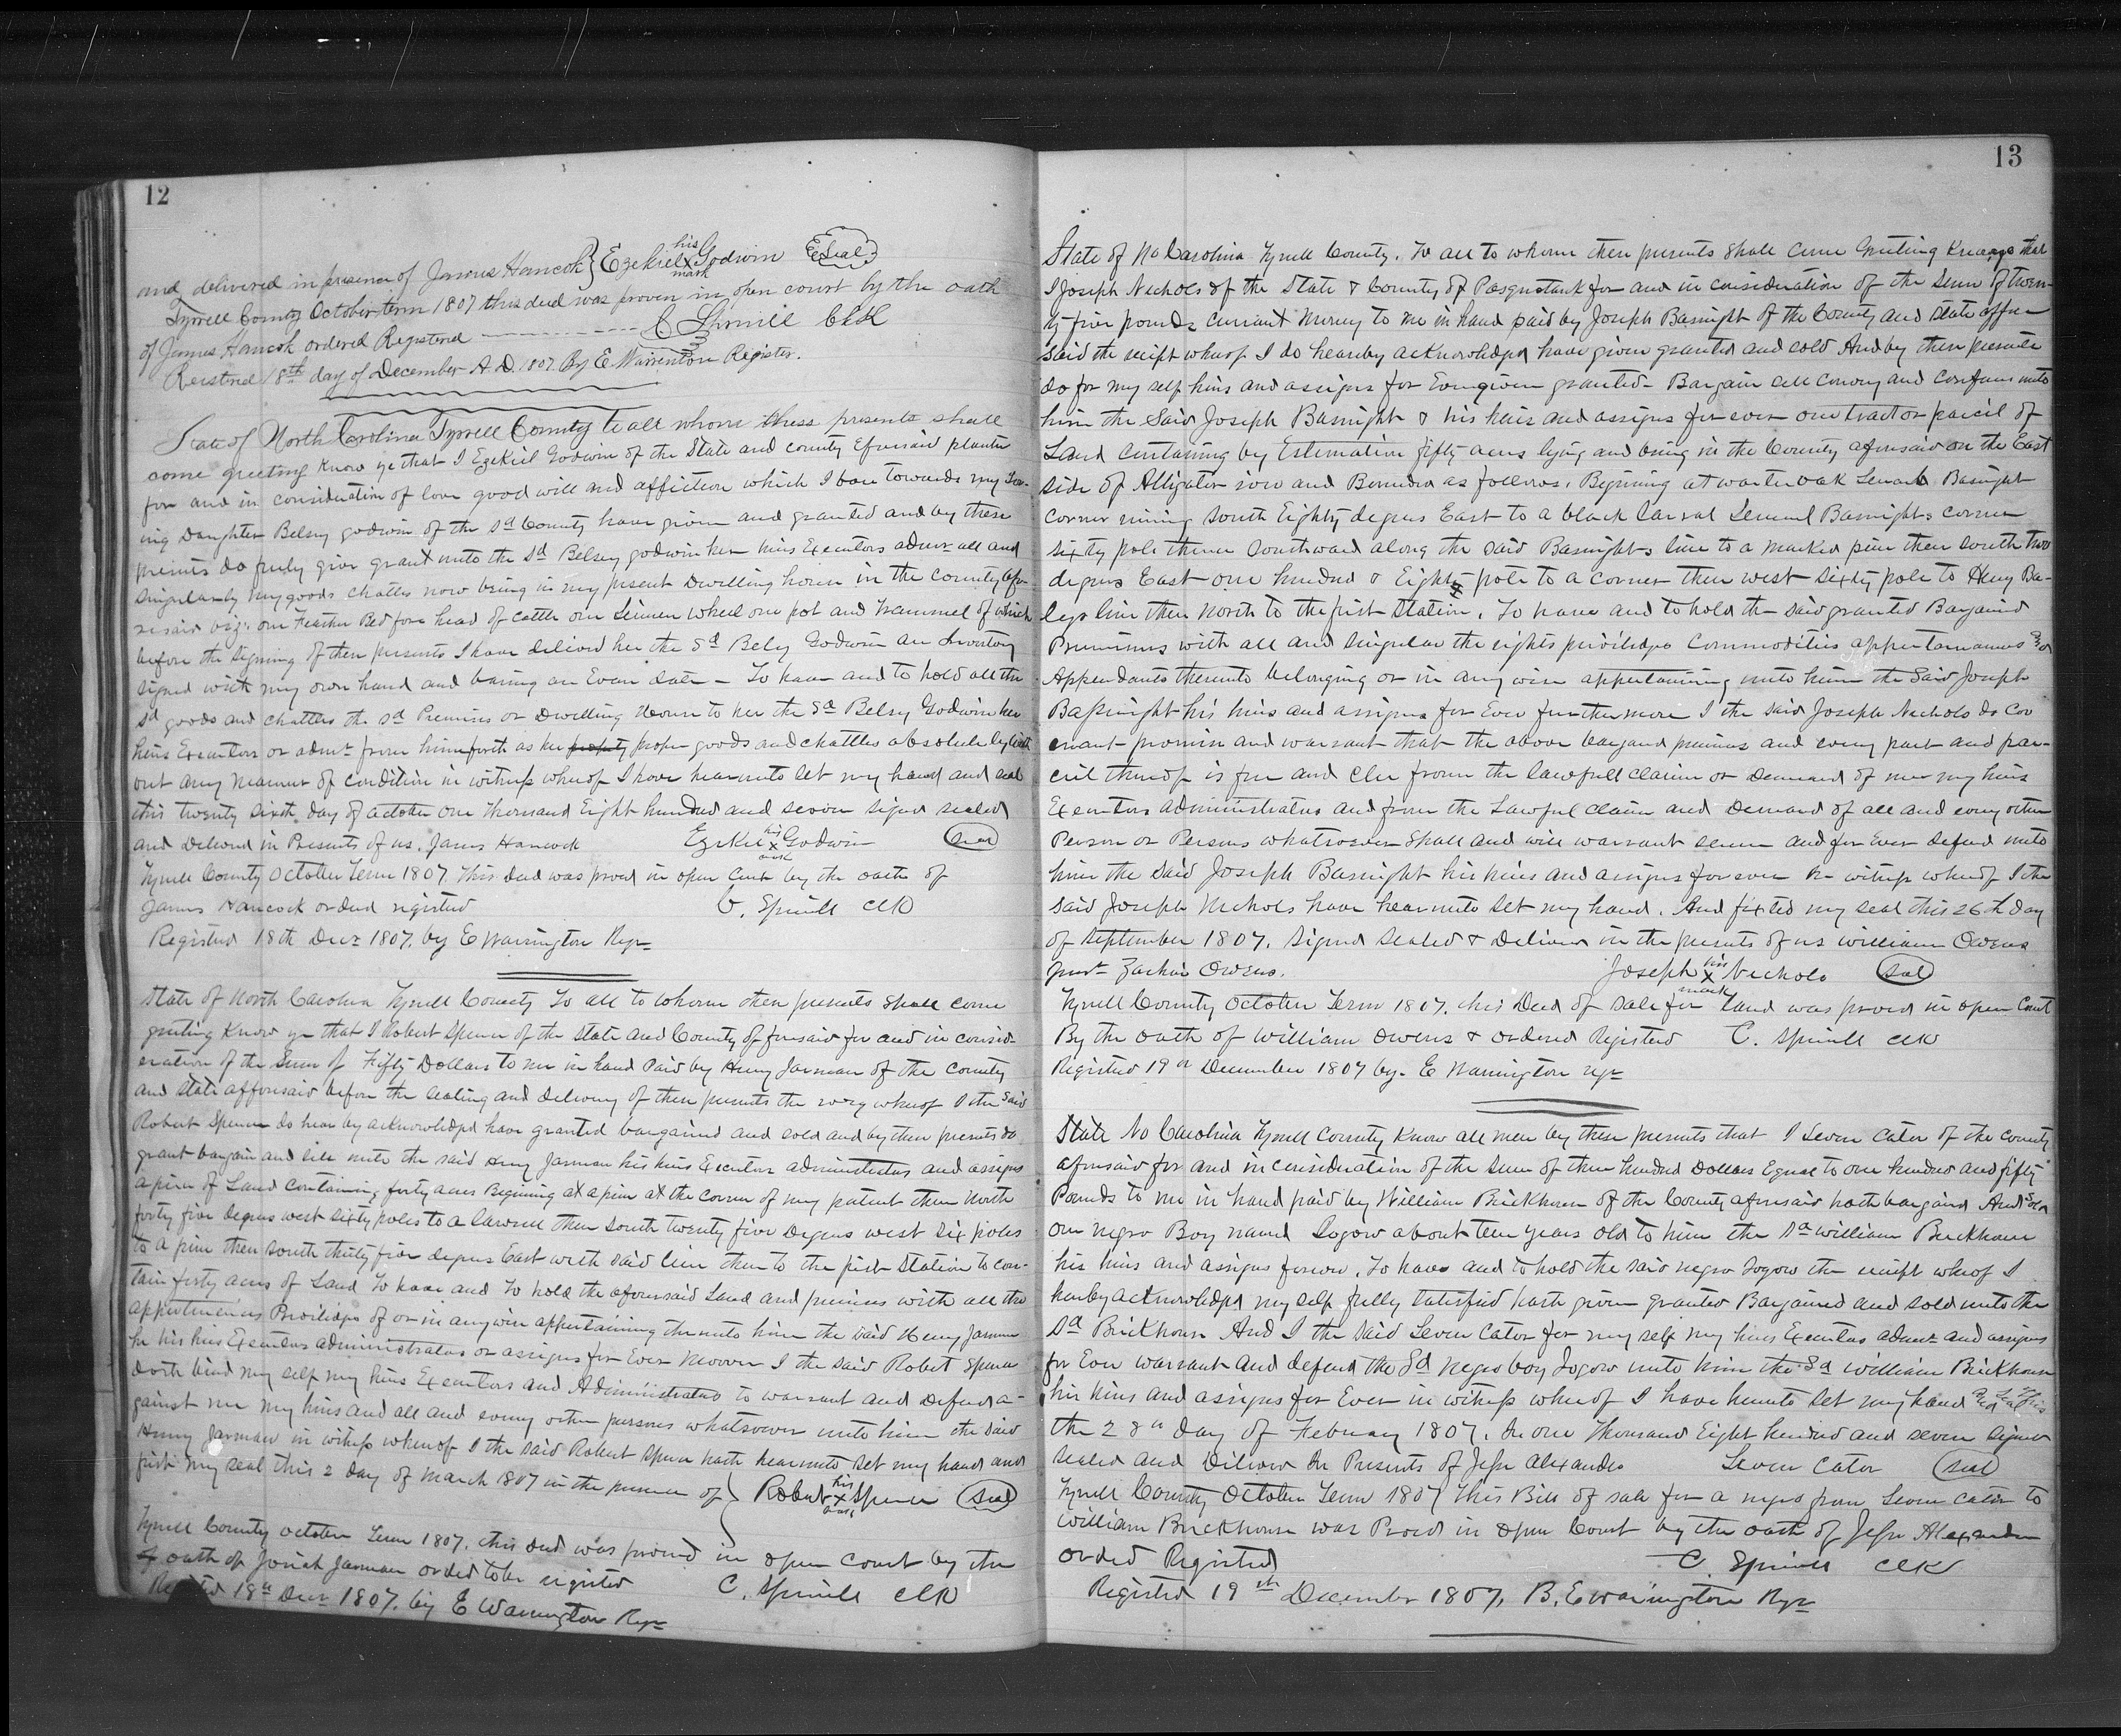 12
and delivered in presence of James Hancok } Ezekiel his x mark Godwin Seal
Tyrrell County October term 1807 this deed was proven in open court by the oath
of James Hancok ordered Registered C Spruill Clk
Reistred 18th day of December A.D. 1807 By E. Warrenton Register.
State of North Carolina Tyrrell County to all whom thess presents shall
come greeting Know ye that I Ezekiel Godwin of the State and county Efoursaid planter
for and in consideration of love good will and affiction which I bare towards my Lov-
ing Daughter Belsey godwin of the sd County have given and granted and by these
presents do freely give grant unto the sd Belsey godwin her heirs Executors admr all and
singularly my goods chattes now being in my present Dwelling house in the county afo-
resaid viz: one Feather Bed five head of cattle one Linnen wheel one pot and trammel of which
before the signing of these presents I have deliverd her the Sd Belsy Godwin an Inventory
signed with my own hand and baring an Even date - To have and to hold all the
sd goods and chattles the sd Premises or Dwelling House to her the Sd Belsey Godwin her
heirs Executors or admrs from hinceforth as her proper goods and chattles absolutely with
out any Manner of condition in witness whereof I have hearunto set my hand and seal
this twenty sixth day of october one thousand Eight hundred and seven signed sealed
and Deliverd in Presents of us. James Hancock Ezekiel his x mark Godwin seal
Tyrrell County October Term 1807 This deed was proved in open Court by the oath of
James Hancock orderd registerd C. Spruill Clk
Registerd 18th Decr 1807. by E Warrington Regr
State of North Carolina Tyrrell County To all to whom these presents shall come
greeting Know ye that I Robert Spencer of the State and County of foresaid for and in consid-
eration of the Sum of Fifty Dollars to me in hand Paid by Henry Jarman of the County
and State afforesaid before the sealing and delivery of these presents the whereof I the said
Robert Spencer do hear by acknowledged have granted bargained and sold and by these presents do
grant bargain and sell unto the said Henry Jarman his heirs Executors administrators and assigns
a piece of Land containing forty acres Begining at a pine at the corner of my patent then North
forty five degres west sixty poles to a lawrell then South twenty five Degres west six poles
to a pine then south thirty five degres East with said line then to the first Station to con-
tain forty acres of Land To have and To hold the aforesaid Land and premises with all the
appurtenences Priviliges of or in anywise appertaining thereunto him the said Henry Jarman
he his heirs Executors administrators or assignes for Ever Moover I the said Robert Spencer
doth bind my self my heirs Executors and Administrators to warrant and Defend a-
gainst me my heirs and all and every other persons whatsoever unto him the said
Henry Jarman in witness whereof I the said Robert Spencer hath hearunto set my hand and
fixt my seal this 2 day of March 1807 in the presence of } Robert his x mark Spencer Seal
Tyrrell County october Term 1807. this deed was proved in open court by the
oath of Josiah Jarman orded to be registed C. Spruill Clk
18th Decr 1807. by E Warrington Regr
13
State of No Carolina Tyrrell County. To all to whom these presents shall come Greeting Know ye that
I Joseph Nichols of the State & County of Pasquotank for and in consideration of the Sum of twen-
ty five pounds Currant Money to me in hand paid by Joseph Basnight of the County and State affore
said the receipt whereof I do heareby acknowledged have given granted and sold And by these presents
do for my self heirs and assigns for Ever given granted Bargain sell convey and confirm unto
him the said Joseph Basnight & his heirs and assigns for ever one tract or parcil of
Land Containing by Estemation fifty acres lying and being in the County aforesaid on the East
side of Alligator and as follows. Begining at warter oak Basnight
corner runing South Eighty degres East to a black Lemuel Basnights corner
sixty pole thence Southward along the said Basnights line to a marked pine then south two
degres East one hundred & Eighty pole to a corner then west sixty pole to Henry Ba-
leys line then North to the first Station. To have and to hold the said granted Bargaind
Premmises with all and singular the rights priviledges Commodities appurtainances and
Appendants thereunto belonging or in any wise appertaining unto him the said Joseph
Bassnight his heirs and assigns for Ever furthermore I the said Joseph Nichols do Cov
enant promise and warrant that the above bargand premises and every part and par-
cil thereof is free and Clee from the lawfull claim or Demand of me my heirs
Executors administrators and from the Lawful claim and Demand of all and every other
Person or Persons whatsoever shall and will warrant secure and for Ever defend unto
him the said Joseph Basnight his heirs and assigns forever In witness whereof I the
said Joseph Nichols have hearunto set my hand. And fixted my seal this 26th day
of September 1807. Signed Sealed & Deliverd in the presents of us william Owens
Zachai Owens. Joseph his x mark Nichols seal
Tyrrell County October Term 1807. this Deed of sale for Land was proved in open Court
By the oath of William owens & orderd Registerd C. Spruill Clk
Registerd 19th December 1807 by. E Warrington regr
State No Carolina Tyrrell County Know all men by these presents that I Leven Cator of the county
aforesaid for and in consideration of the Sum of three hundred Dollars Equal to one hundred and fifty
Pounds to me in hand paid by William Brickhouse of the County aforesaid hath bargaind And sold
one negro Boy named Logow about ten years old to him the sd william Brickhouse
his heirs and assigns forever. To have and to hold the said negro Logow the receipt whereof I
hereby acknowledged my self fully satisfied hath given granted Bargained and sold unto the
sd Brickhouse And I the said Leven Cator for my self my heirs Executors admrs and assigns
for Ever warrant and defend the Sd negro boy Logow unto him the Sd William Brickhouse
his heirs and assigns for Ever in witness whereof I have heunto set my hand and Seal this
the 28th day of Febuary 1807. In one thousand Eight hundred and seven signed
sealed and Deliverd In Presents of Jesse Alexander Leven Cator seal
Tyrrell County October Term 1807 This Bill of sale for a negro from Leven Cator to
William Brickhouse was Proved in open Court by the oath of Jesse Alexander
orded Registerd C. Spruill Clk
Registerd 19th December 1807. B. E Warrington Regr